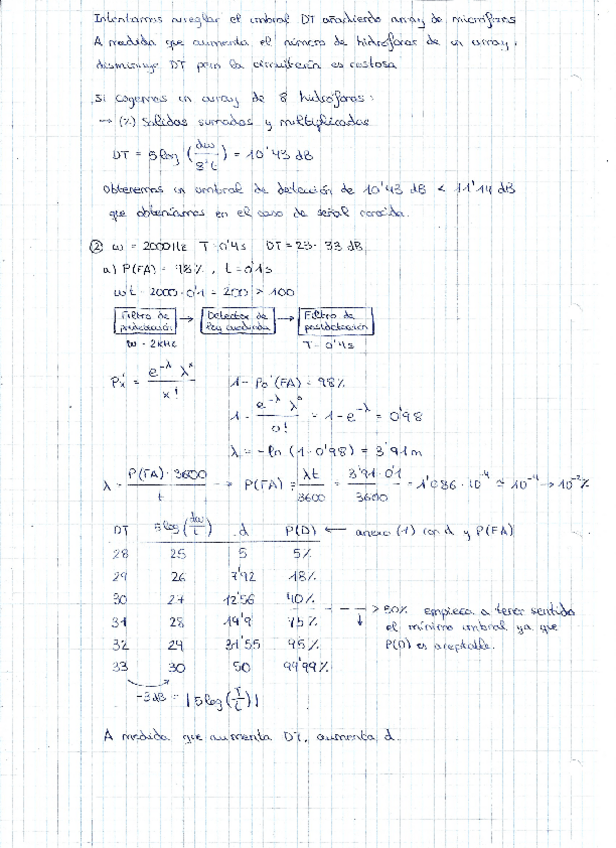 Intentamos arreglar el umbral DT añadiendo array de micrófonos
A medida que aumenta el número de hidrófonos de un array,
disminuye DT pero la circuitería es costosa
Si cogemos un array de 8 hidrófonos:
→ (%) Salidas sumadas y multiplicadas
DT = 5log (dω/8·t) = 10'43 dB
obtenemos un umbral de detección de 10'43 dB < 11'14 dB
que obteníamos en el caso de señal conocida.
② ω = 2000Hz T = 0'4s DT = 28 - 33 dB
a) P(FA) = 98% , t = 0'1s
ω·t = 2000·0'1 = 200 > 100
Filtro de predetección → Detector de ley cuadrada → Filtro de postdetección
ω = 2kHz T = 0'4s
Px' = e^-λ λ^x / x! 1 - P0'(FA) = 98%
1 - e^-λ λ^0 / 0! = 1 - e^-λ = 0'98
λ = -ln (1-0'98) = 3'91
λ = P(FA)·3600 / t → P(FA) = λt / 3600 = 3'91·0'1 / 3600 = 1'086·10^-4 ≃ 10^-4 → 10^-2 %
DT 5log(dω/t) d P(D) ← anexo (1) con d y P(FA)
28 25 5 5%
29 26 7'92 18%
30 27 12'56 40%
- - - → > 50% empieza a tener sentido
31 28 19'9 75% ↓ el mínimo umbral ya que
32 29 31'55 95% P(D) es aceptable.
33 30 50 99'99%
-3dB = |5log(T/t)|
A medida que aumenta DT, aumenta d.